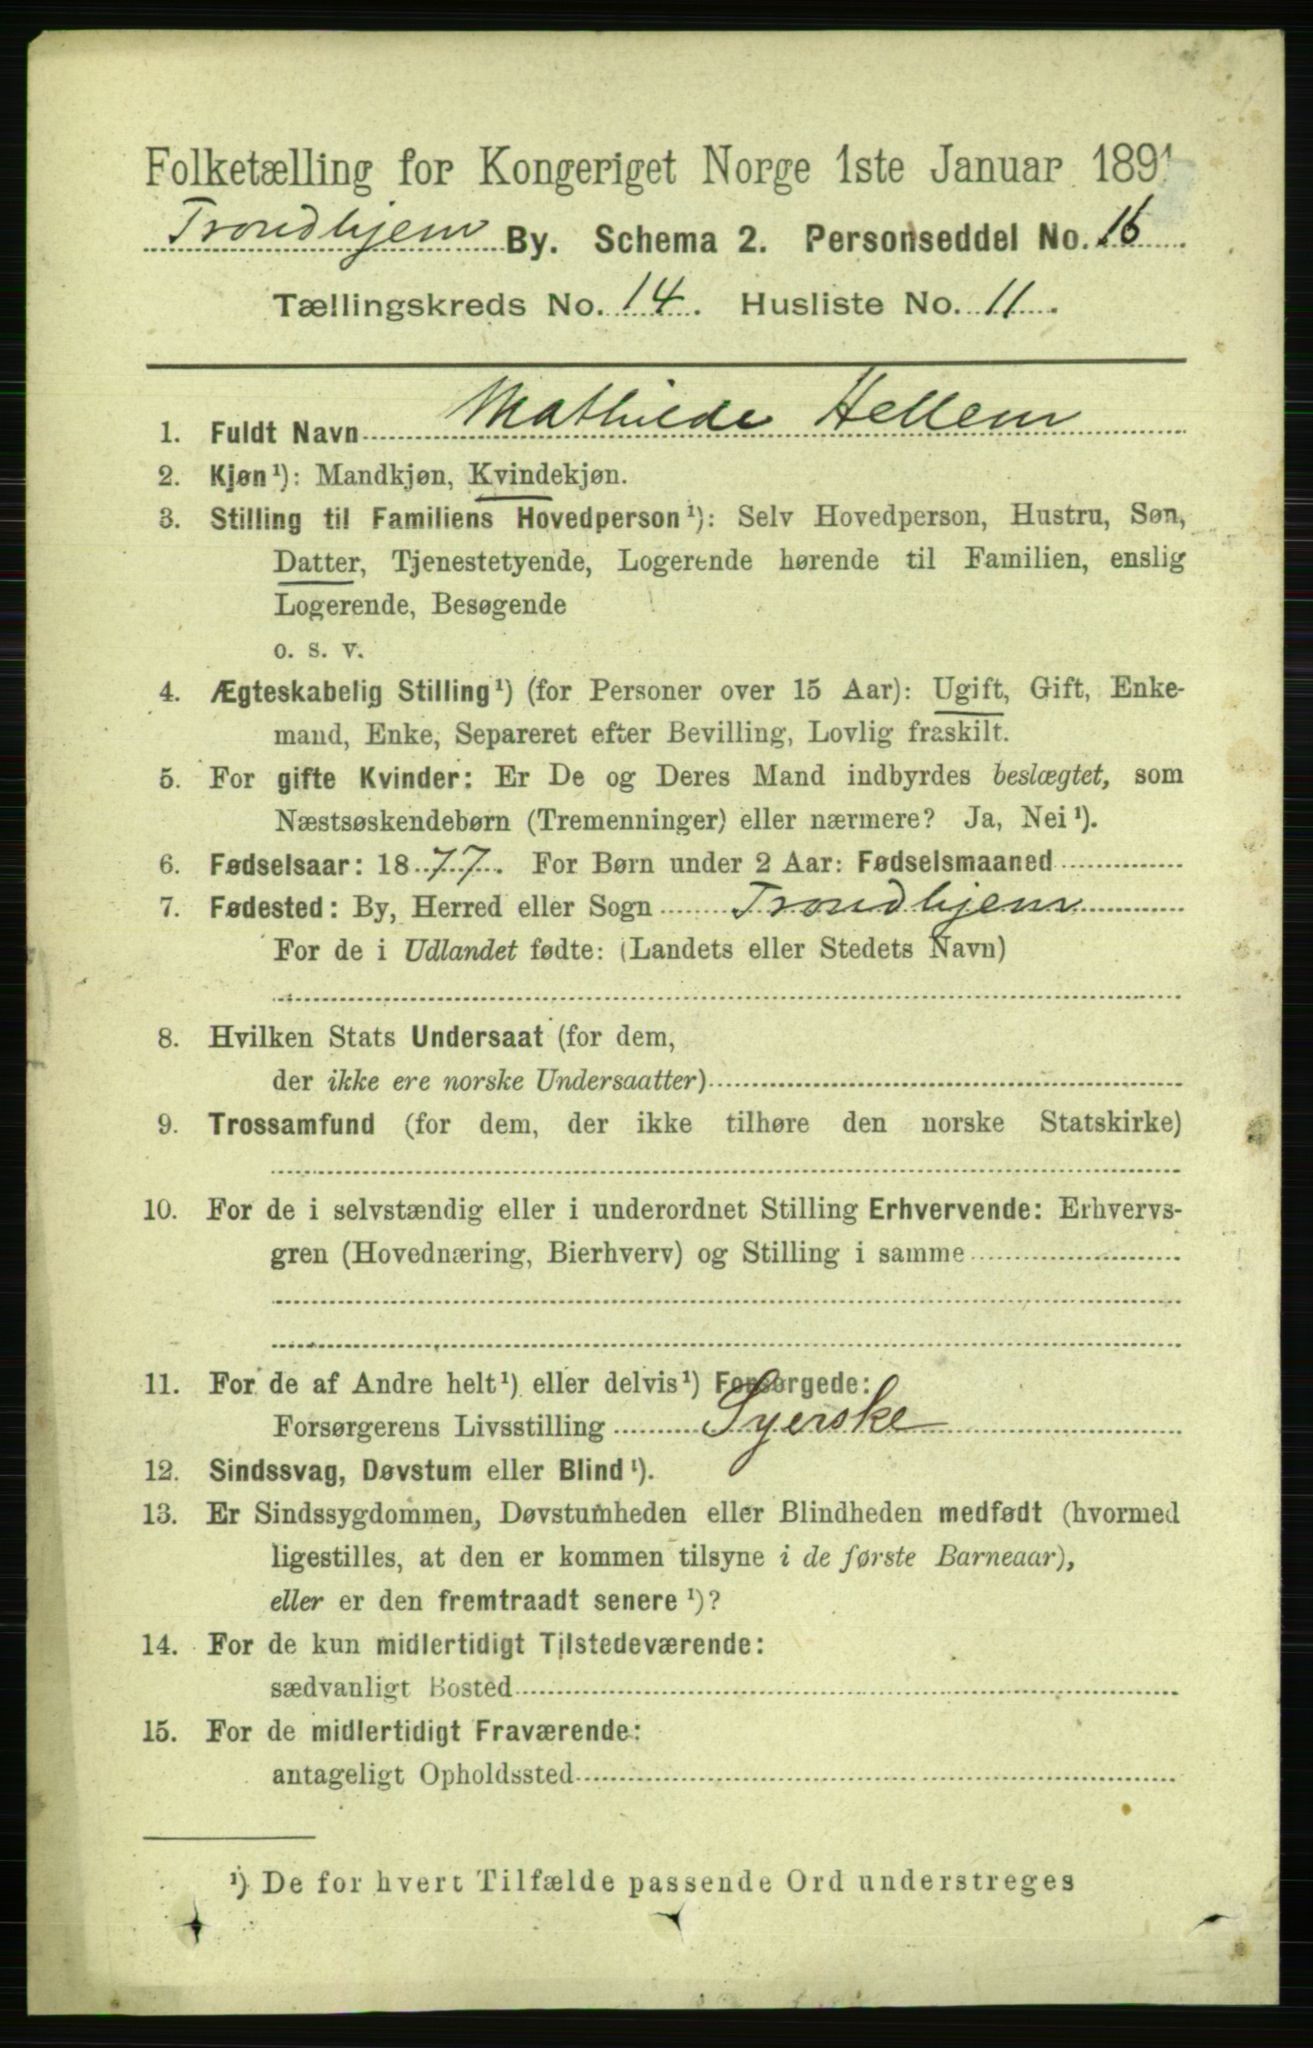 Folketælling for Kongeriget Norge 1ste Januar 1891
Trondhjem By. Schema 2. Personseddel No. 16
Tællingskreds No. 14. Husliste No. 11.
1. Fuldt Navn Mathilde Hellem
2. Kjøn¹): Mandkjøn, Kvindekjøn.
3. Stilling til Familiens Hovedperson¹): Selv Hovedperson, Hustru, Søn,
Datter, Tjenestetyende, Logerende hørende til Familien, enslig
Logerende, Besøgende
o. s. v.
4. Ægteskabelig Stilling¹) (for Personer over 15 Aar): Ugift, Gift, Enke-
mand, Enke, Separeret efter Bevilling, Lovlig fraskilt.
5. For gifte Kvinder: Er De og Deres Mand indbyrdes beslægtet, som
Næstsøskendebørn (Tremenninger) eller nærmere? Ja, Nei¹).
6. Fødselsaar: 1877. For Børn under 2 Aar: Fødselsmaaned
7. Fødested: By, Herred eller Sogn Trondhjem
For de i Udlandet fødte: (Landets eller Stedets Navn)
8. Hvilken Stats Undersaat (for dem,
der ikke ere norske Undersaatter)
9. Trossamfund (for dem, der ikke tilhøre den norske Statskirke)
10. For de i selvstændig eller i underordnet Stilling Erhvervende: Erhvervs-
gren (Hovednæring, Bierhverv) og Stilling i samme
11. For de af Andre helt¹) eller delvis¹) Forsørgede:
Forsørgerens Livsstilling Syerske
12. Sindssvag, Døvstum eller Blind¹).
13. Er Sindssygdommen, Døvstumheden eller Blindheden medfødt (hvormed
ligestilles, at den er kommen tilsyne i de første Barneaar),
eller er den fremtraadt senere¹)?
14. For de kun midlertidigt Tilstedeværende:
sædvanligt Bosted
15. For de midlertidigt Fraværende:
antageligt Opholdssted
¹) De for hvert Tilfælde passende Ord understreges